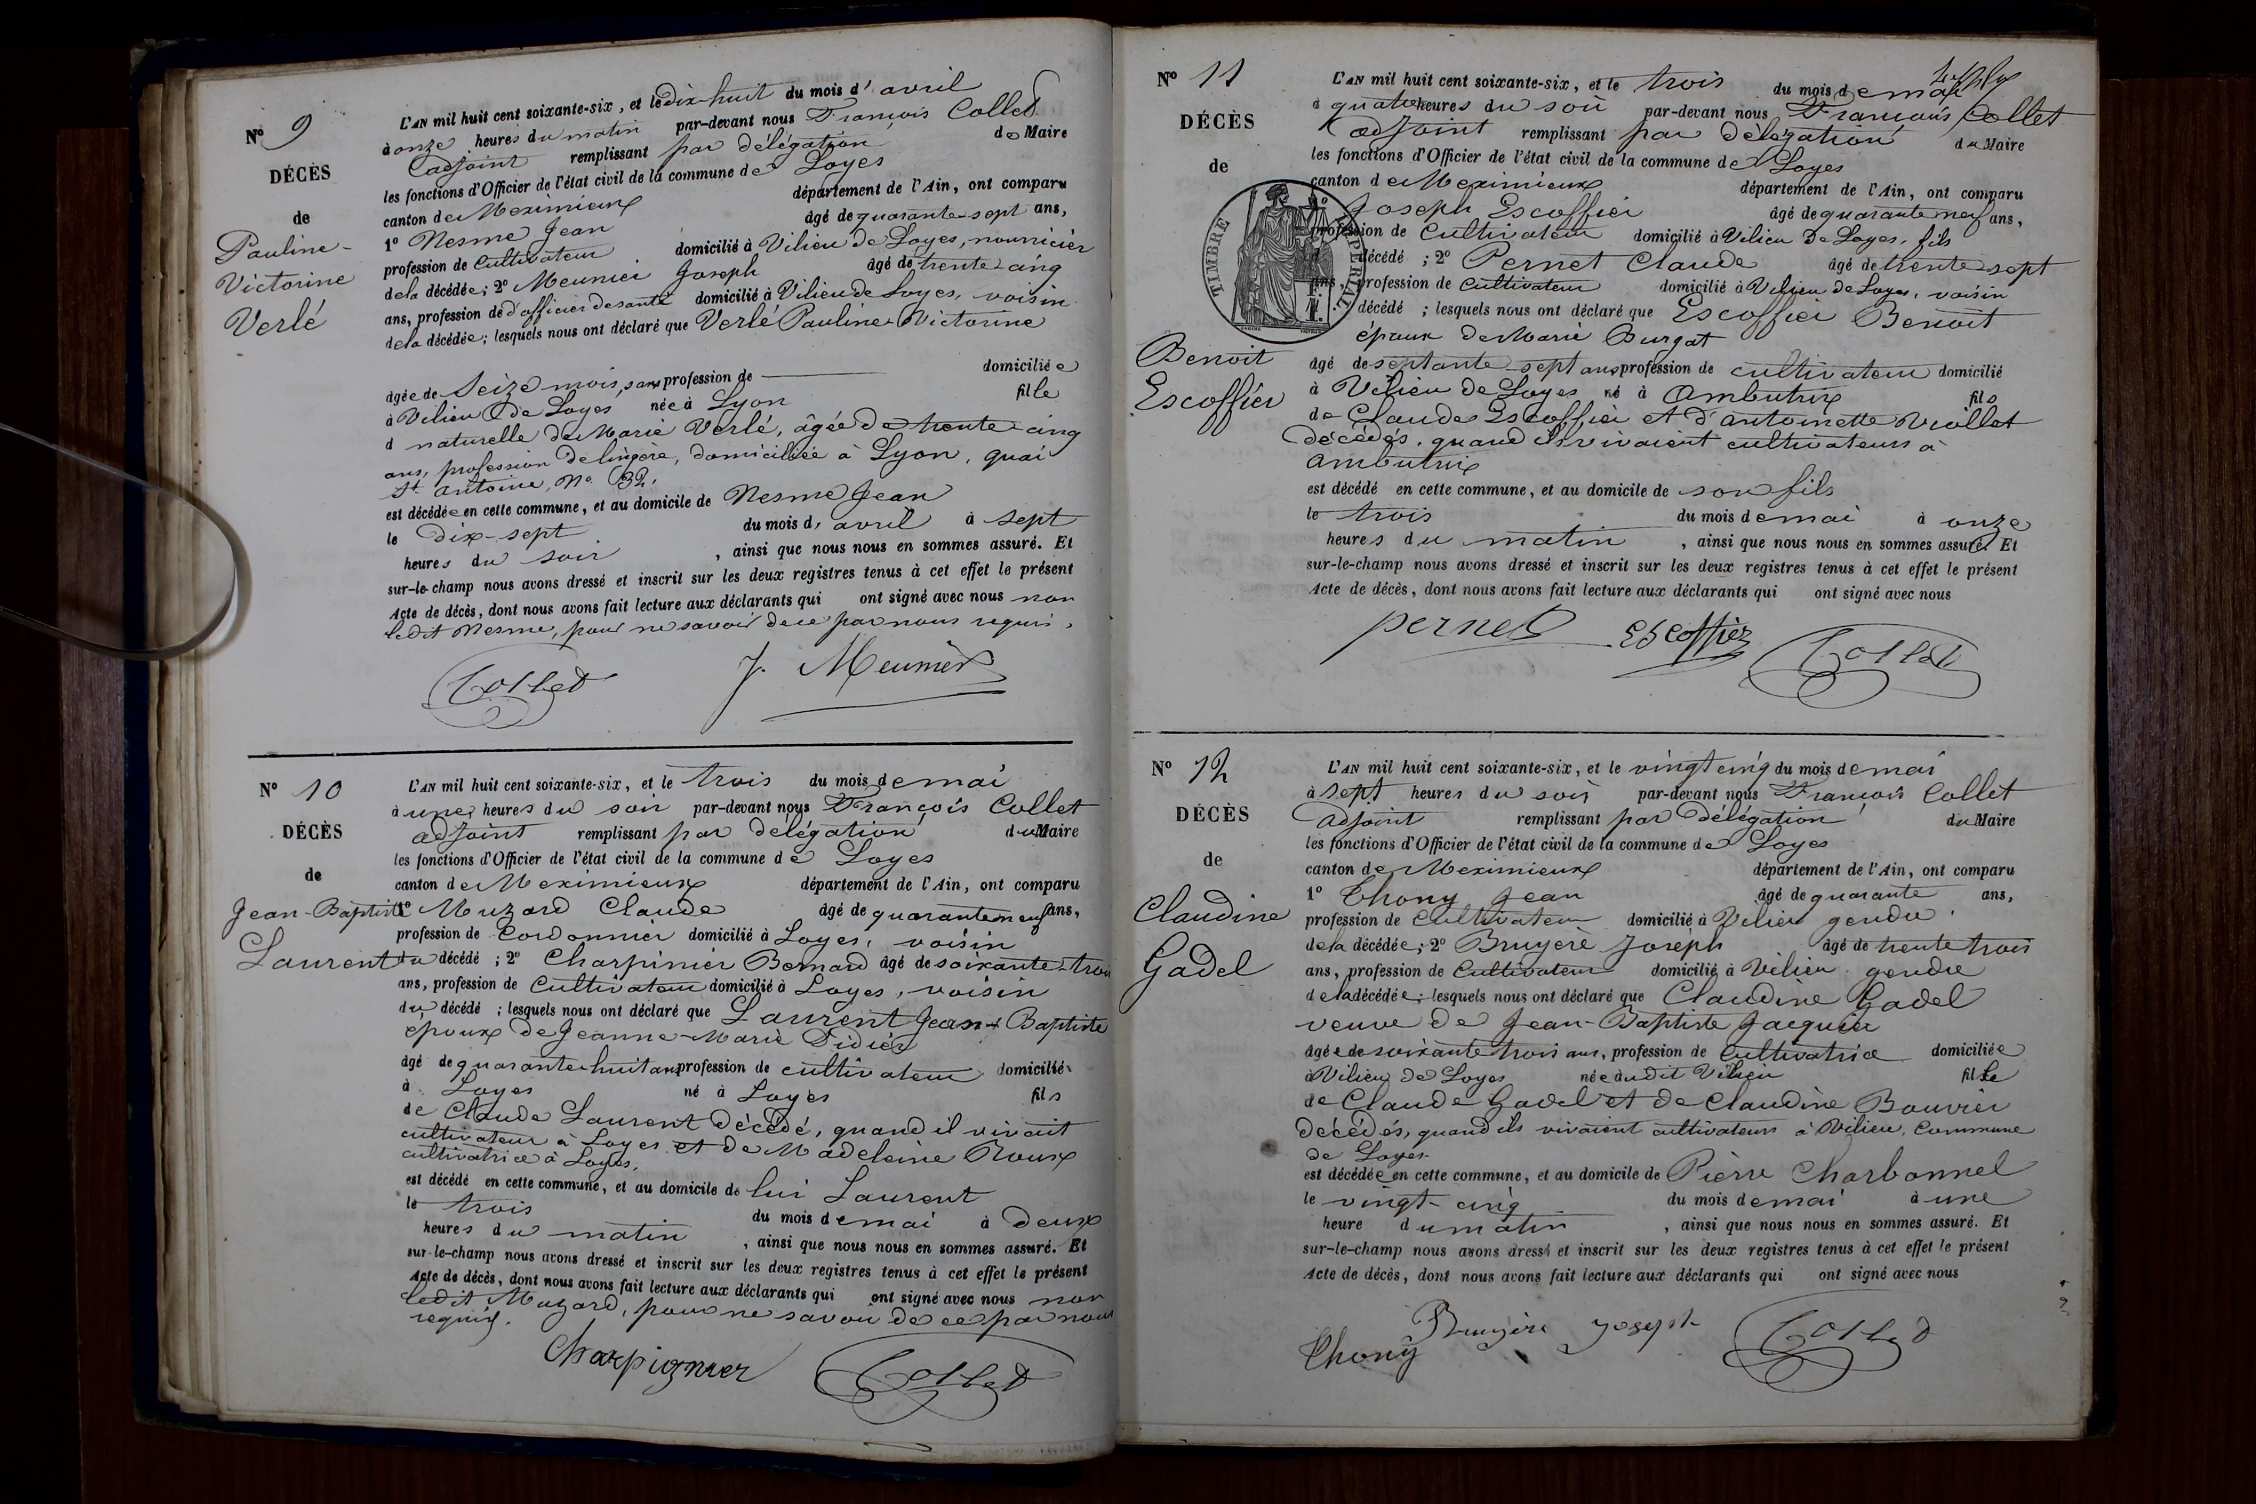 N° 9
DÉCÈS
de
Pauline-
Victorine
Verlé
L'AN mil huit cent soixante-six, et le dix-huit du mois d'avril
à onze heures du matin par-devant nous François Collet
adjoint remplissant par délégation de Maire
les fonctions d'Officier de l'état civil de la commune de Loyes
canton de Meximieux département de l'Ain, ont comparu
1° Nesme Jean âgé de quarante-sept ans,
profession de Cultivateur domicilié à Vilieu de Loyes, nourricier
de la décédée; 2° Meunier Joseph âgé de trente-cinq
ans, profession de d'officier de santé domicilié à Vilieu de Loyes, voisin
de la décédée; lesquels nous ont déclaré que Verlé Pauline-Victorine
domiciliée
âgée de Seize mois, sans profession de
à Vilieu de Loyes née à Lyon fille
d naturelle de Marie Verlé, âgée de trente-cinq
ans, profession de lingère, domiciliée à Lyon, quai
St. antoine, N° 32.
est décédée en cette commune, et au domicile de Nesme Jean
le Dix-sept du mois d'avril à sept
heures du soir , ainsi que nous nous en sommes assuré. Et
sur-le-champ nous avons dressé et inscrit sur les deux registres tenus à cet effet le présent
Acte de décès, dont nous avons fait lecture aux déclarants qui ont signé avec nous non
ledit Nesme, pour ne savoir de ce par nous requis.
Collet J. Meunier
N° 10
DÉCÈS
de
Jean-Baptiste
Laurent
L'AN mil huit cent soixante-six, et le trois du mois de mai
à une heures du soir par-devant nous François Collet
adjoint remplissant par délégation du Maire
les fonctions d'Officier de l'état civil de la commune de Loyes
canton de Meximieux département de l'Ain, ont comparu
1° Muzard Claude âgé de quarante neuf ans,
profession de Cordonnier domicilié à Loyes, voisin
du décédé ; 2° Charpinier Bernard âgé de soixante-trois
ans, profession de Cultivateur domicilié à Loyes, voisin
du décédé ; lesquels nous ont déclaré que Laurent Jean-Baptiste
époux de Jeanne-Marie Didier
âgé de quarante-huit ans profession de cultivateur domicilié
à Loyes né à Loyes fils
de Claude Laurent décédé, quand il vivait
cultivateur à Loyes et de Madeleine Roux
cultivatrice à Loyes.
est décédé en cette commune, et au domicile de lui Laurent
le trois du mois de mai à deux
heures du matin , ainsi que nous nous en sommes assuré. Et
sur-le-champ nous avons dressé et inscrit sur les deux registres tenus à cet effet le présent
Acte de décès, dont nous avons fait lecture aux déclarants qui ont signé avec nous non
ledit Muzard, pour ne savoir de ce par nous
requis.
Charpignier Collet
N° 11
DÉCÈS
de
TIMBRE IMPÉRIAL
Benoit
Escoffier
L'AN mil huit cent soixante-six, et le trois du mois de mai
à quatre heures du soir par-devant nous François Collet
adjoint remplissant par délégation du Maire
les fonctions d'Officier de l'état civil de la commune de Loyes
canton de Meximieux département de l'Ain, ont comparu
1° Joseph Escoffier âgé de quarante neuf ans,
profession de Cultivateur domicilié à Vilieu de Loyes, fils
décédé ; 2° Pernet Claude âgé de trente-sept
ans, profession de Cultivateur domicilié à Vilieu de Loyes, voisin
décédé ; lesquels nous ont déclaré que Escoffier Benoit
époux de Marie Burgat
âgé de septante-sept ans profession de cultivateur domicilié
à Vilieu de Loyes né à Ambutrix fils
de Claude Escoffier et d'antoinette Viollet
décédés, quand ils vivaient cultivateurs à
ambutrix
est décédé en cette commune, et au domicile de son fils
le trois du mois de mai à onze
heures du matin , ainsi que nous nous en sommes assuré. Et
sur-le-champ nous avons dressé et inscrit sur les deux registres tenus à cet effet le présent
Acte de décès, dont nous avons fait lecture aux déclarants qui ont signé avec nous
pernet Escoffier Collet
N° 12
DÉCÈS
de
Claudine
Gadel
L'AN mil huit cent soixante-six, et le vingt cinq du mois de mai
à sept heures du soir par-devant nous François Collet
adjoint remplissant par délégation du Maire
les fonctions d'Officier de l'état civil de la commune de Loyes
canton de Meximieux département de l'Ain, ont comparu
1° Thony Jean âgé de quarante ans,
profession de Cultivateur domicilié à Vilieu gendre
de la décédée; 2° Bruyère Joseph âgé de trente trois
ans, profession de Cultivateur domicilié à Vilieu gendre
de la décédée; lesquels nous ont déclaré que Claudine Gadel
veuve de Jean-Baptiste Jacquier
âgée de soixante trois ans, profession de Cultivatrice domiciliée
à Vilieu de Loyes née audit Vilieu fille
de Claude Gadel et de Claudine Bouvier
décédés, quand ils vivaient cultivateurs à Vilieu, Commune
de Loyes.
est décédée en cette commune, et au domicile de Pierre Charbonnel
le vingt-cinq du mois de mai à une
heure du matin , ainsi que nous nous en sommes assuré. Et
sur-le-champ nous avons dressé et inscrit sur les deux registres tenus à cet effet le présent
Acte de décès, dont nous avons fait lecture aux déclarants qui ont signé avec nous
Thony Bruyère Joseph Collet